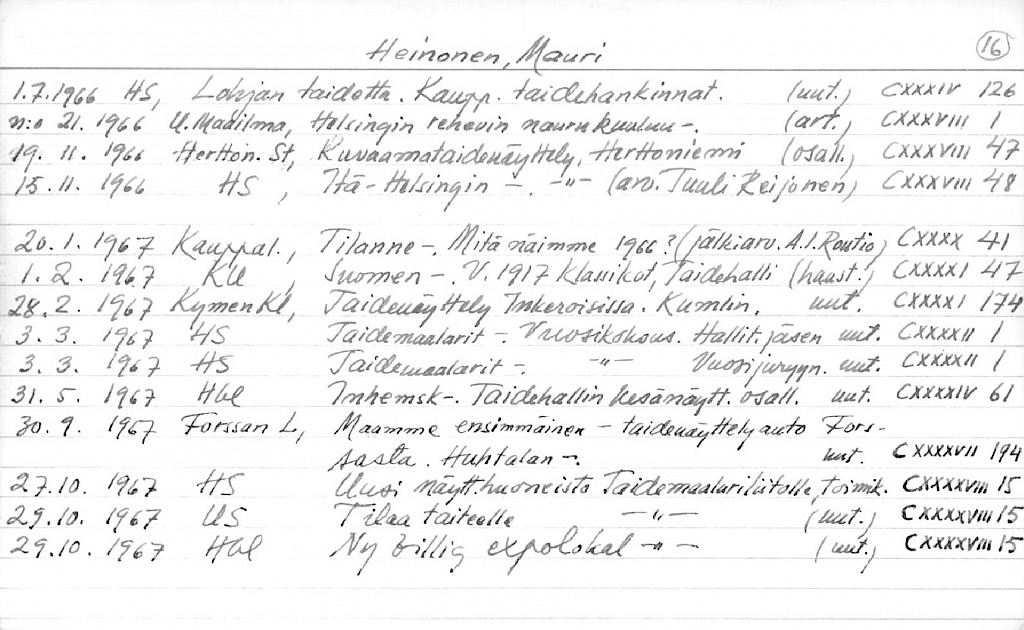 Heinonen, Mauri 16
1.7.1966 HS, Lohjan taidetta. Kaupp. taidehankinnat. (uut.) CXXXIV 126
n:o 21. 1966 U. Maailma, Helsingin rehevin naurukuuluu-. (art.) CXXXVIII 1
19. 11. 1966 Hertton. St, Kuvaamataidenäyttely, Herttoniemi (osall.) CXXXVIII 47
15. 11. 1966 HS, Itä-Helsingin - -"- (arv. Tuuli Reijonen) CXXXVIII 48
20. 1. 1967 Kauppal., Tilanne-. Mitä näimme 1966? (jälkiarv. A.I. Routio) CXXXX 41
1. 2. 1967 KU, Suomen-. V. 1917 klassikot, Taidehalli (haast.) CXXXXI 47
28. 2. 1967 Kymen Kl, Taidenäyttely Inkeroisissa. Kumlin. uut. CXXXXI 174
3. 3. 1967 HS Taidemaalarit-. Vuosikokous. Hallit. jäsen uut. CXXXXII 1
3. 3. 1967 HS Taidemaalarit-. -"- Vuosijuryyn. uut. CXXXXII 1
31. 5. 1967 Hbl Inhemsk-. Taidehallin kesänäytt. osall. uut. CXXXXIV 61
30. 9. 1967 Forssan L, Maamme ensimmäinen - taidenäyttelyauto Fors-
sasta. Huhtalan-. uut. CXXXXVII 194
27.10. 1967 HS Uusi näytt.huoneisto Taidemaalariliitolle, toimik. CXXXXVIII 15
29.10. 1967 US Tilaa taiteelle -"- (uut.) CXXXXVIII 15
29.10. 1967 Hbl Ny billig expolokal -"- (uut.) CXXXXVIII 15